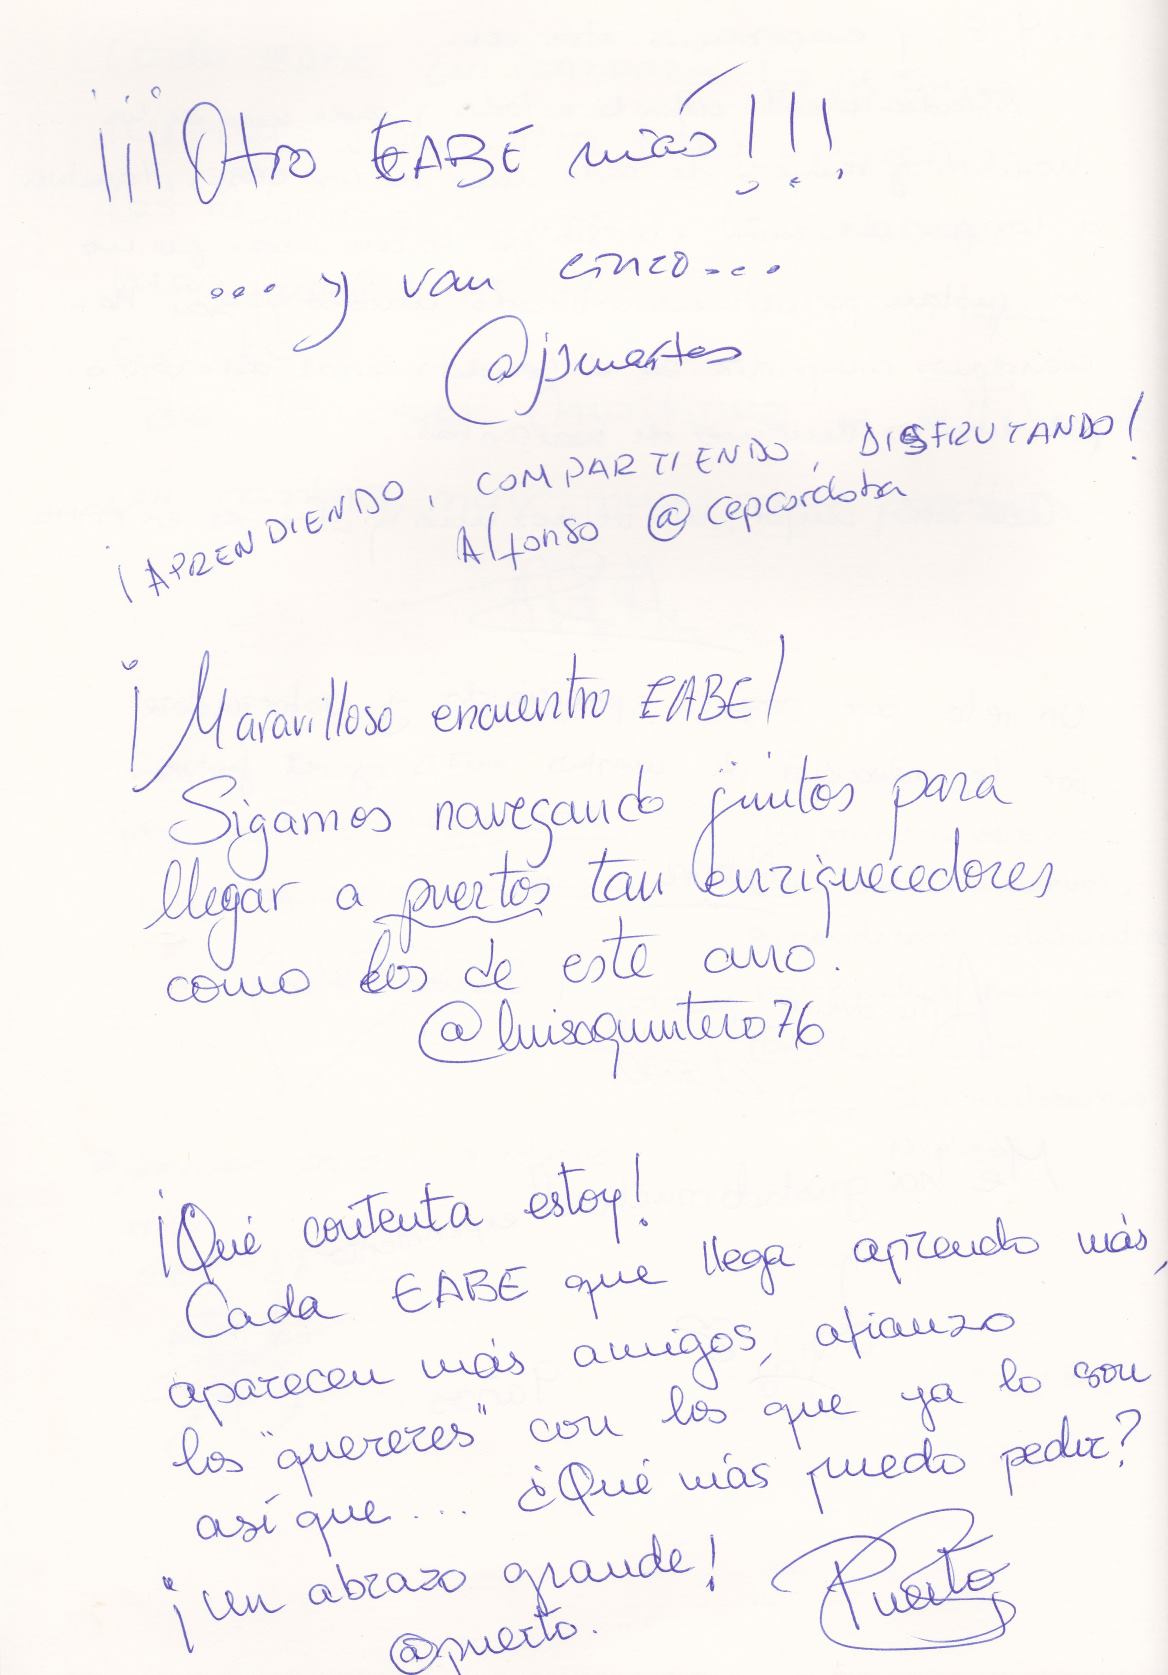 ¡¡¡Otro EABE más!!!
... y van cinco...
@jjsmartos
¡APRENDIENDO, COMPARTIENDO, DISFRUTANDO!
Alfonso @cepcordoba
¡Maravilloso encuentro EABE!
Sigamos navegando juntos para
llegar a puertos tan enriquecedores
como los de este año.
@luisaquintero76
¡Qué contenta estoy!
Cada EABE que llega aprendo más,
aparecen más amigos, afianzo
los "quereres" con los que ya lo son
así que... ¿Qué más puedo pedir?
¡Un abrazo grande!
Puerto
@puerto.